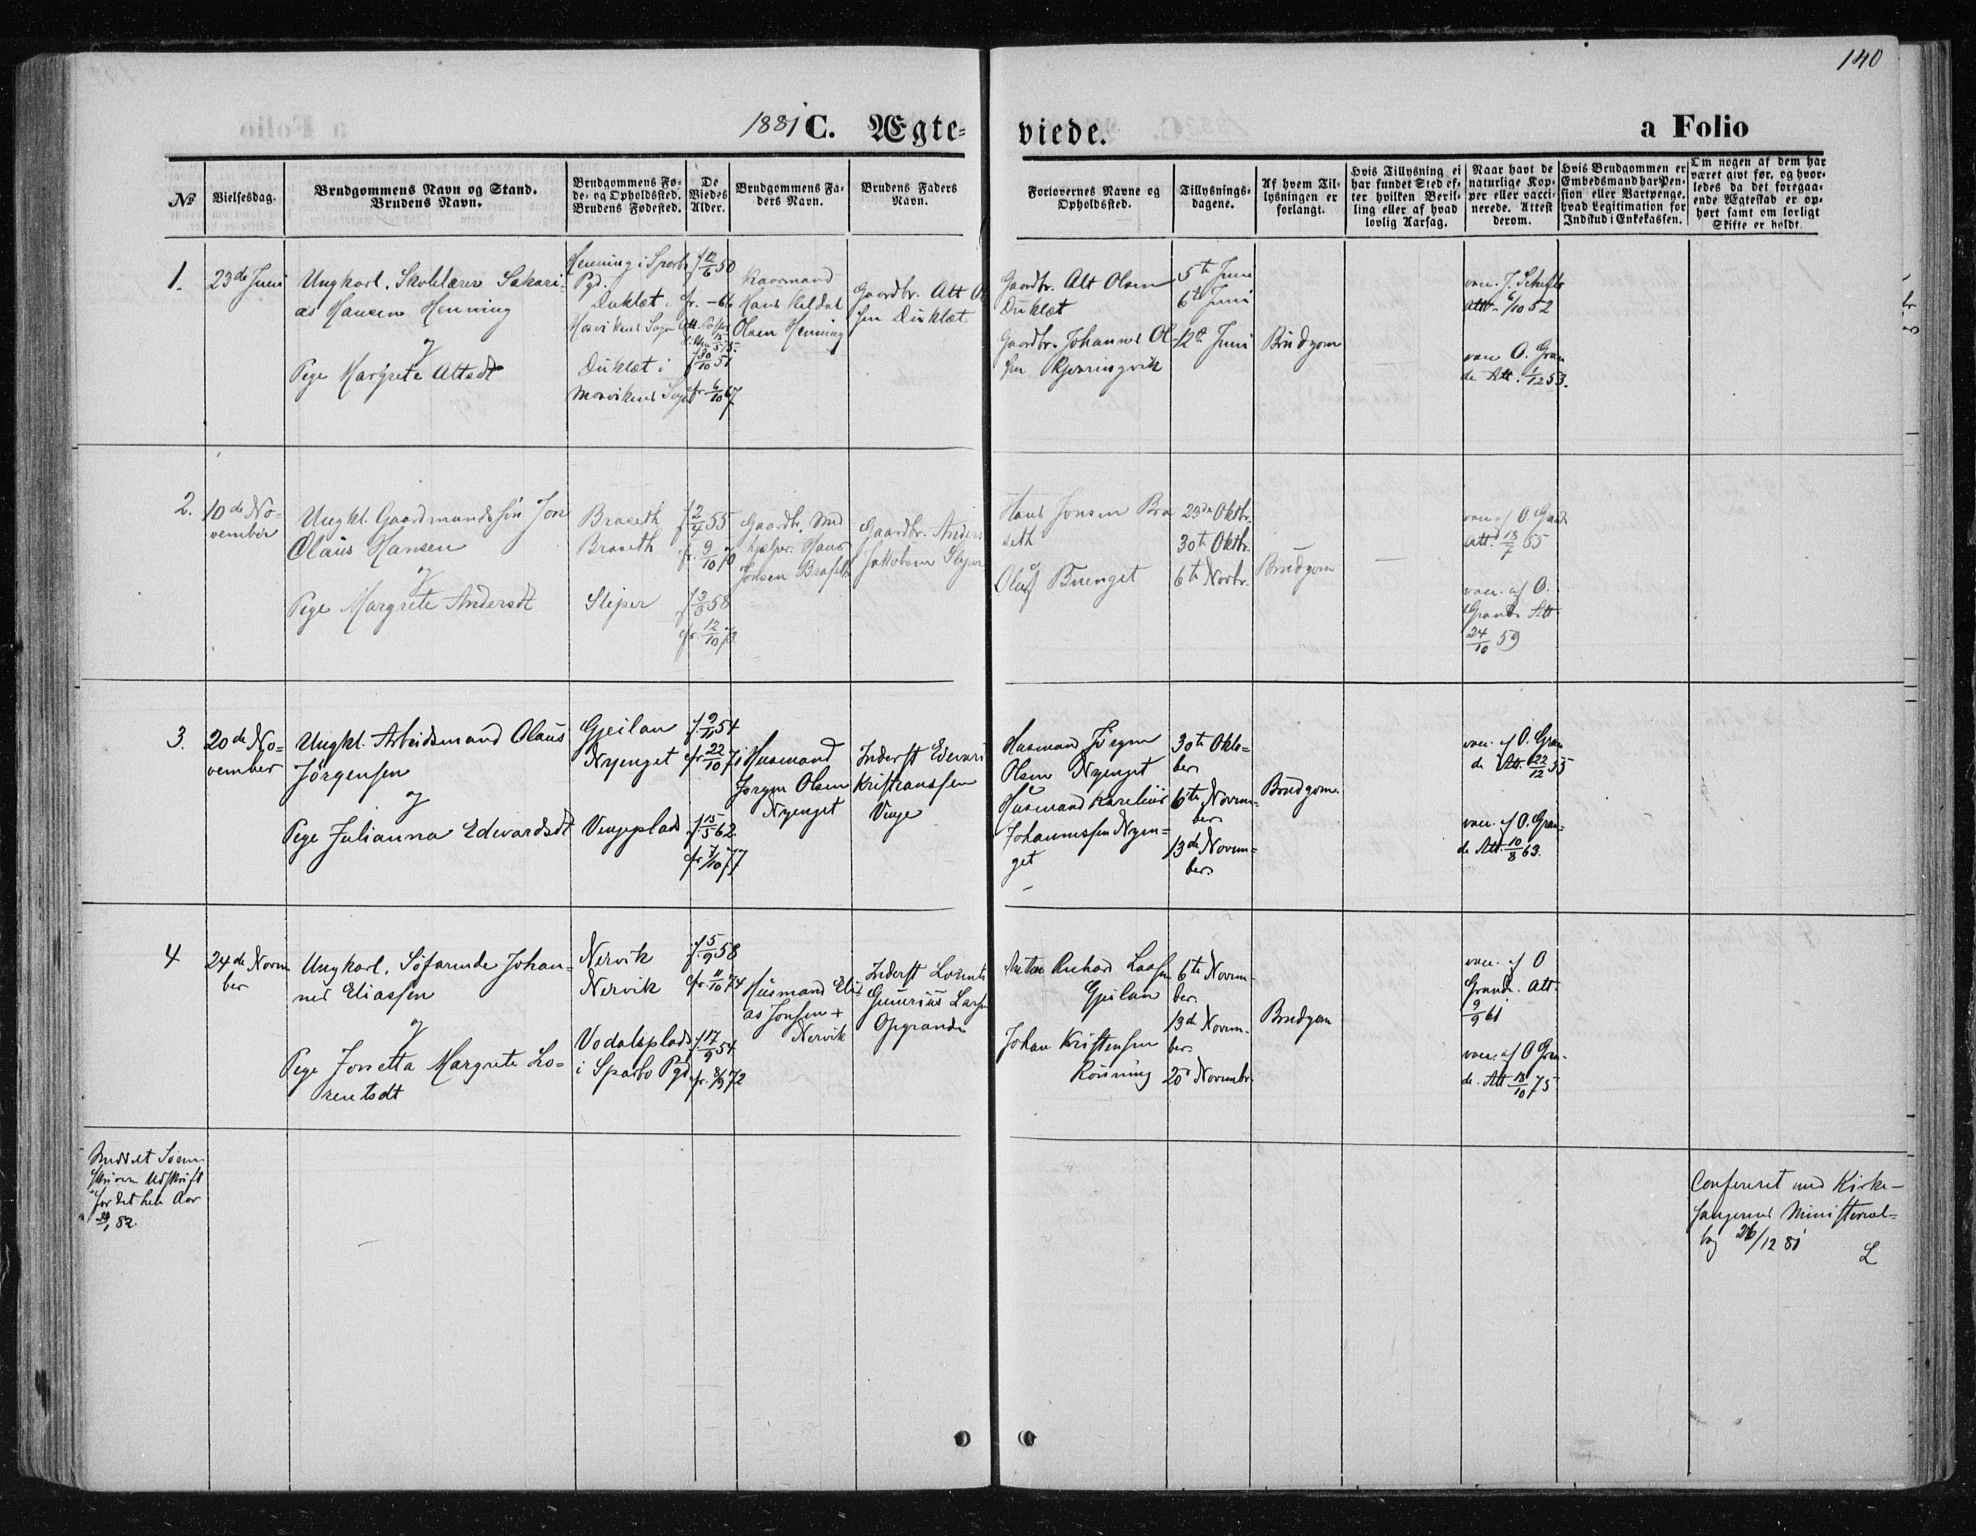 140
1881 C. Ægte=
viede.
a Folio
№
Vielsesdag.
Brudgommens Navn og Stand.
Brudens Navn.
Brudgommens Fø-
de- og Opholdssted.
Brudens Fødested.
De
Viedes
Alder.
Brudgommens Fa-
ders Navn.
Brudens Faders
Navn.
Forlovernes Navne og
Opholdssted.
Tillysnings-
dagene.
Af hvem Til-
lysningen er
forlangt.
Hvis Tillysning ei
har fundet Sted ef-
ter hvilken Bevil-
ling eller af hvad
lovlig Aarsag.
Naar havt de
naturlige Kop-
per eller vacci-
nerede. Attest
derom.
Hvis Brudgommen er
Embedsmand har Pen-
sion eller Vartpenge,
hvad Legitimation for
Indskud i Enkekassen.
Om nogen af dem har
været givt før, og hvor-
ledes da det foregaa-
ende Ægteskab er op-
hørt samt om lovligt
Skifte er holdt.
1.
23de Juni
Ungkarl. Skolelærer Sakari-
as Hansen Henning
og
Pige Margrete Altsdt
Henning i Sparbo
Pgd.
Duklæt.
Morvikens Sogn
Duklæt i
Morvikens Sogn
f 12/6 50
cfr. -66
f 30/10 51
cfr 6/10 67
Kaarmand
Hans Kildal
Olsen Henning
Gaardbr. Alt Ol
sen Duklæt
Gaardbr. Alt Olsen
Duklæt
Gaardbr. Johannes Ol-
sen Kjerringvik
5te Juni
6te Juni
12te Juni
Brudgom
vacc. J. Schefte
Att. 6/10 52
vacc O. Gran
de Att. 1/12 53.
2.
10de No-
vember
Ungkl. Gaardmandssøn Jon
Olaus Hansen
og
Pige Margrete Andersdt
Braseth
Braseth
Sliper
f 2/4 55
cfr. 9/10 70
f 3/3 58
cfr. 12/10 73
Gaardbr. Med
hjælper. Hans
Jonsen Braseth
Gaardbr. Anders
Jakobsen Sliper
Hans Jonsen Bra
seth
Oluf Buenget
23de Oktbr.
30te Oktbr.
6te Novbr.
Brudgom
—
vacc. af O. Grande
Att. 13/7 65
vacc. af O.
Grande Att
24/10 59
3.
20de No=
vember
Ungkl. Arbeidsmand Olaus
Jörgensen
og
Pige Julianna Edevardsdt
Gjeilan
Nyenget
Vingeplads
f. 9/11 54
cfr 22/10 71
f 15/5 62
cfr 7/10 77
Husmand
Jörgen Olsen
Nyenget
Inderst Edevard
Kristianssen
Vinge
Husmand Jörgen
Olsen Nyenget
Husmand Karelius
Johannessen Nyen=
get
30te Okto=
ber
6te Novem-
ber
13de Novem=
ber.
Brudgom.
vacc. af O. Gran
de Att. 22/12 55
vacc. af O. Gran=
de Att. 10/8 63.
4
24de Novem
ber
Ungkarl. Söfarende Johan=
nes Eliassen
og
Pige Jonetta Margrete Lo-
rentsdt
Nervik
Nervik
Vodalsplads
i Sparbo Pgd
f. 5/9 58
cfr 11/10 74
f. 17/9 54
cfr. 8/9 72
Husmand Eli-
as Jonsen +
Nervik
Inderst Lorents
Gunerius Larsen
Opgrande
Anton Richard Laasen
Gjeilan
Johan Kristensen
Rösning
6te Novem-
ber.
13de Novem-
ber.
20de Novembr
Brudgom
vacc. af O
Grande. Att.
9/9 61
vacc. af O Gran-
de. Att 13/10 75
Meddelt Soren-
skriveren Udskrift
for det hele Aar
82.
Confereret med Kirke-
sangerens Ministerial=
bog 26/12 81
L